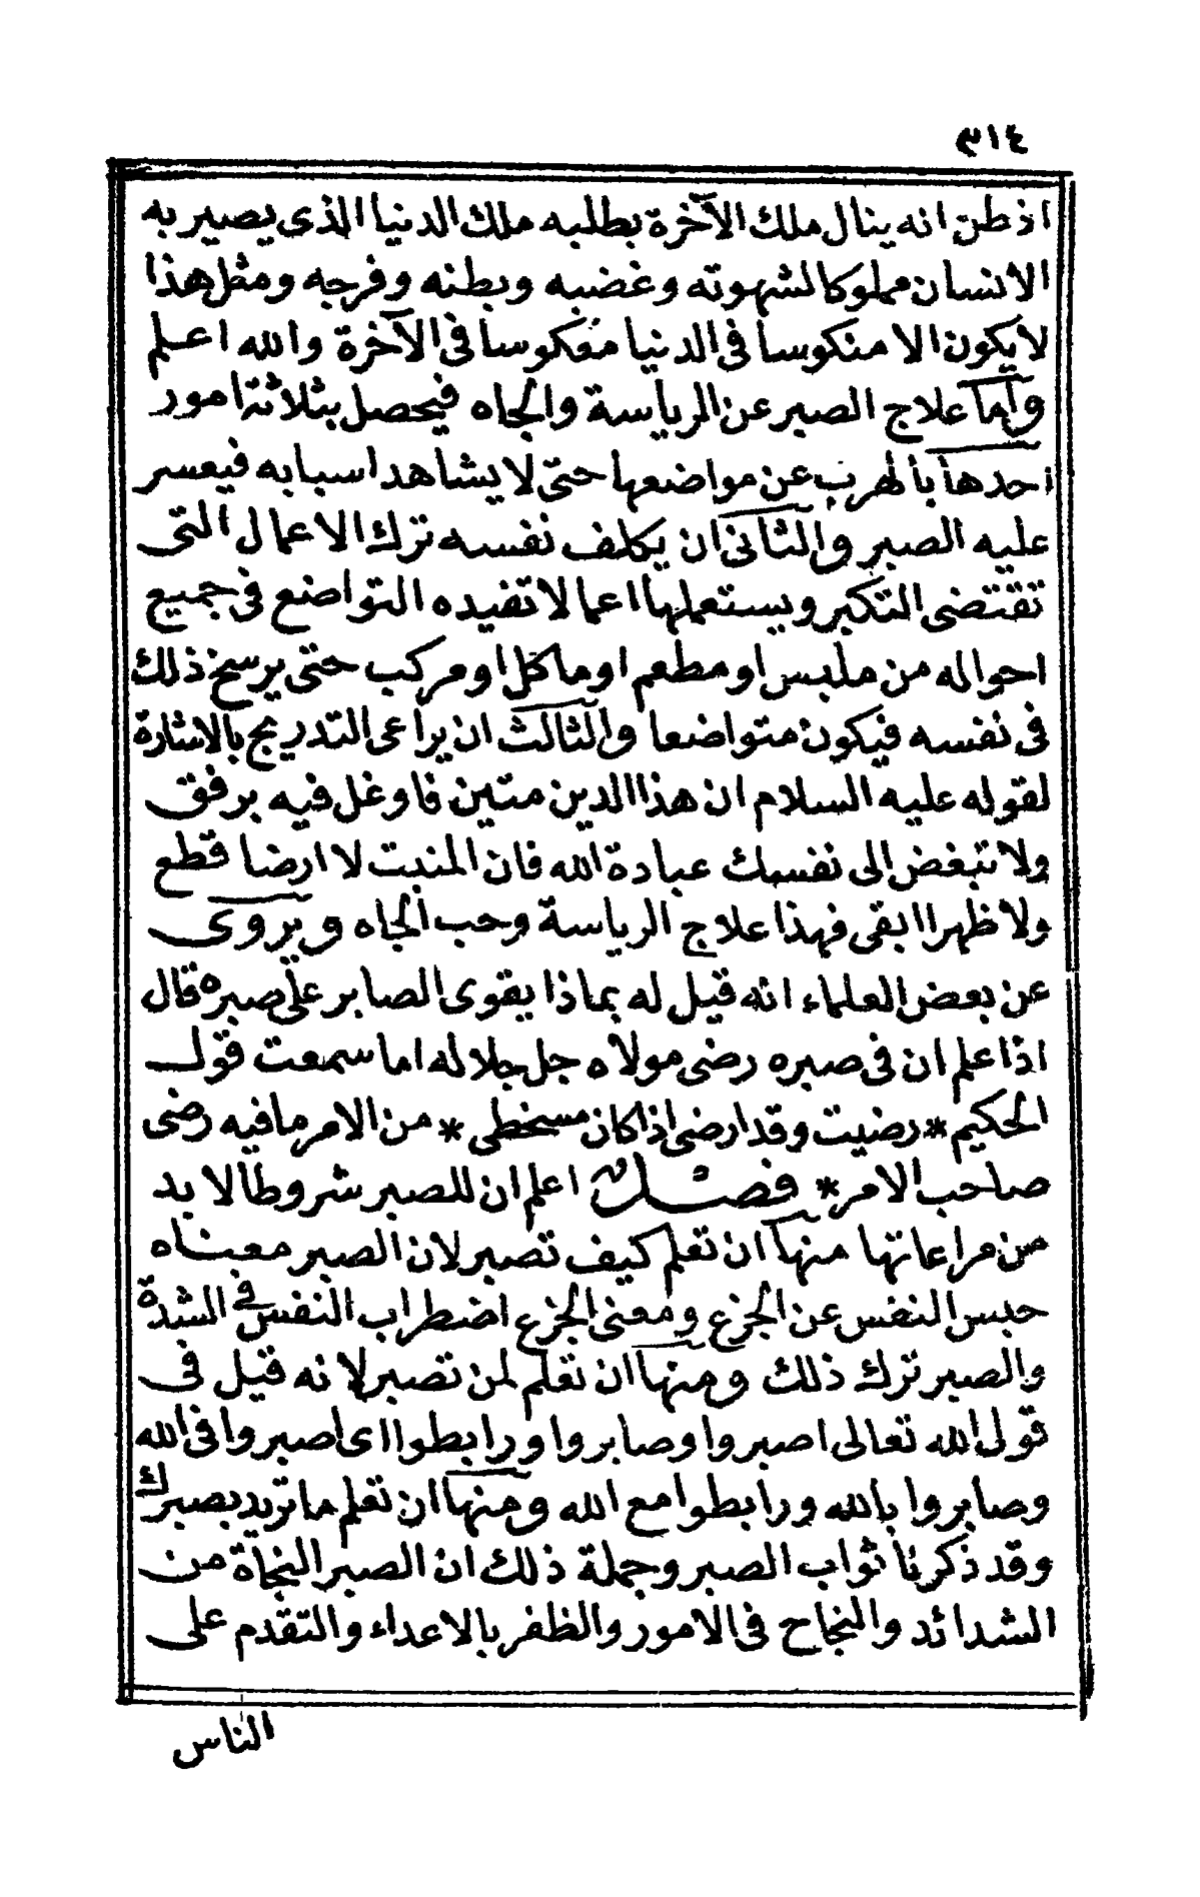 ٣١٤
اذ ظن انه ينال ملك الآخرة بطلبه ملك الدنيا الذى يصير به
الانسان مملوكا لشهوته وغضبه وبطنه وفرجه ومثل هذا
لا يكون الا منكوسا فى الدنيا معكوسا فى الآخرة والله اعلم
واما علاج الصبر عن الرياسة والجاه فيحصل بثلاثة امور
احدها بالهرب عن مواضعها حتى لا يشاهد اسبابه فيعسر
عليه الصبر والثانى ان يكلف نفسه ترك الاعمال التى
تقتضى التكبر ويستعملها اعمالا تفيده التواضع فى جميع
احواله من ملبس او مطعم او ماكل او مركب حتى يرسخ ذلك
فى نفسه فيكون متواضعا والثالث ان يراعى التدريج بالاشارة
لقوله عليه السلام ان هذا الدين متين فاوغل فيه برفق
ولا تبغض الى نفسك عبادة الله فان المنبت لا ارضا قطع
ولا ظهرا ابقى فهذا علاج الرياسة وحب الجاه ويروى
عن بعض العلماء انه قيل له بماذا يقوى الصابر على صبره قال
اذا علم ان فى صبره رضى مولاه جل جلاله اما سمعت قول
الحكيم * رضيت وقد ارضى اذا كان مسخطى * من الامر ما فيه رضى
صاحب الامر * فصل اعلم ان للصبر شروطا لا بد
من مراعاتها منها ان تعلم كيف تصبر لان الصبر معناه
حبس النفس عن الجزع ومعنى الجزع اضطراب النفس فى الشدة
والصبر ترك ذلك ومنها ان تعلم لمن تصبر لانه قيل فى
قول الله تعالى اصبروا وصابروا ورابطوا اى اصبروا فى الله
وصابروا بالله ورابطوا مع الله ومنها ان تعلم ما تريد بصبرك
وقد ذكرنا ثواب الصبر وجملة ذلك ان الصبر النجاة من
الشدائد والنجاح فى الامور والظفر بالاعداء والتقدم على
الناس